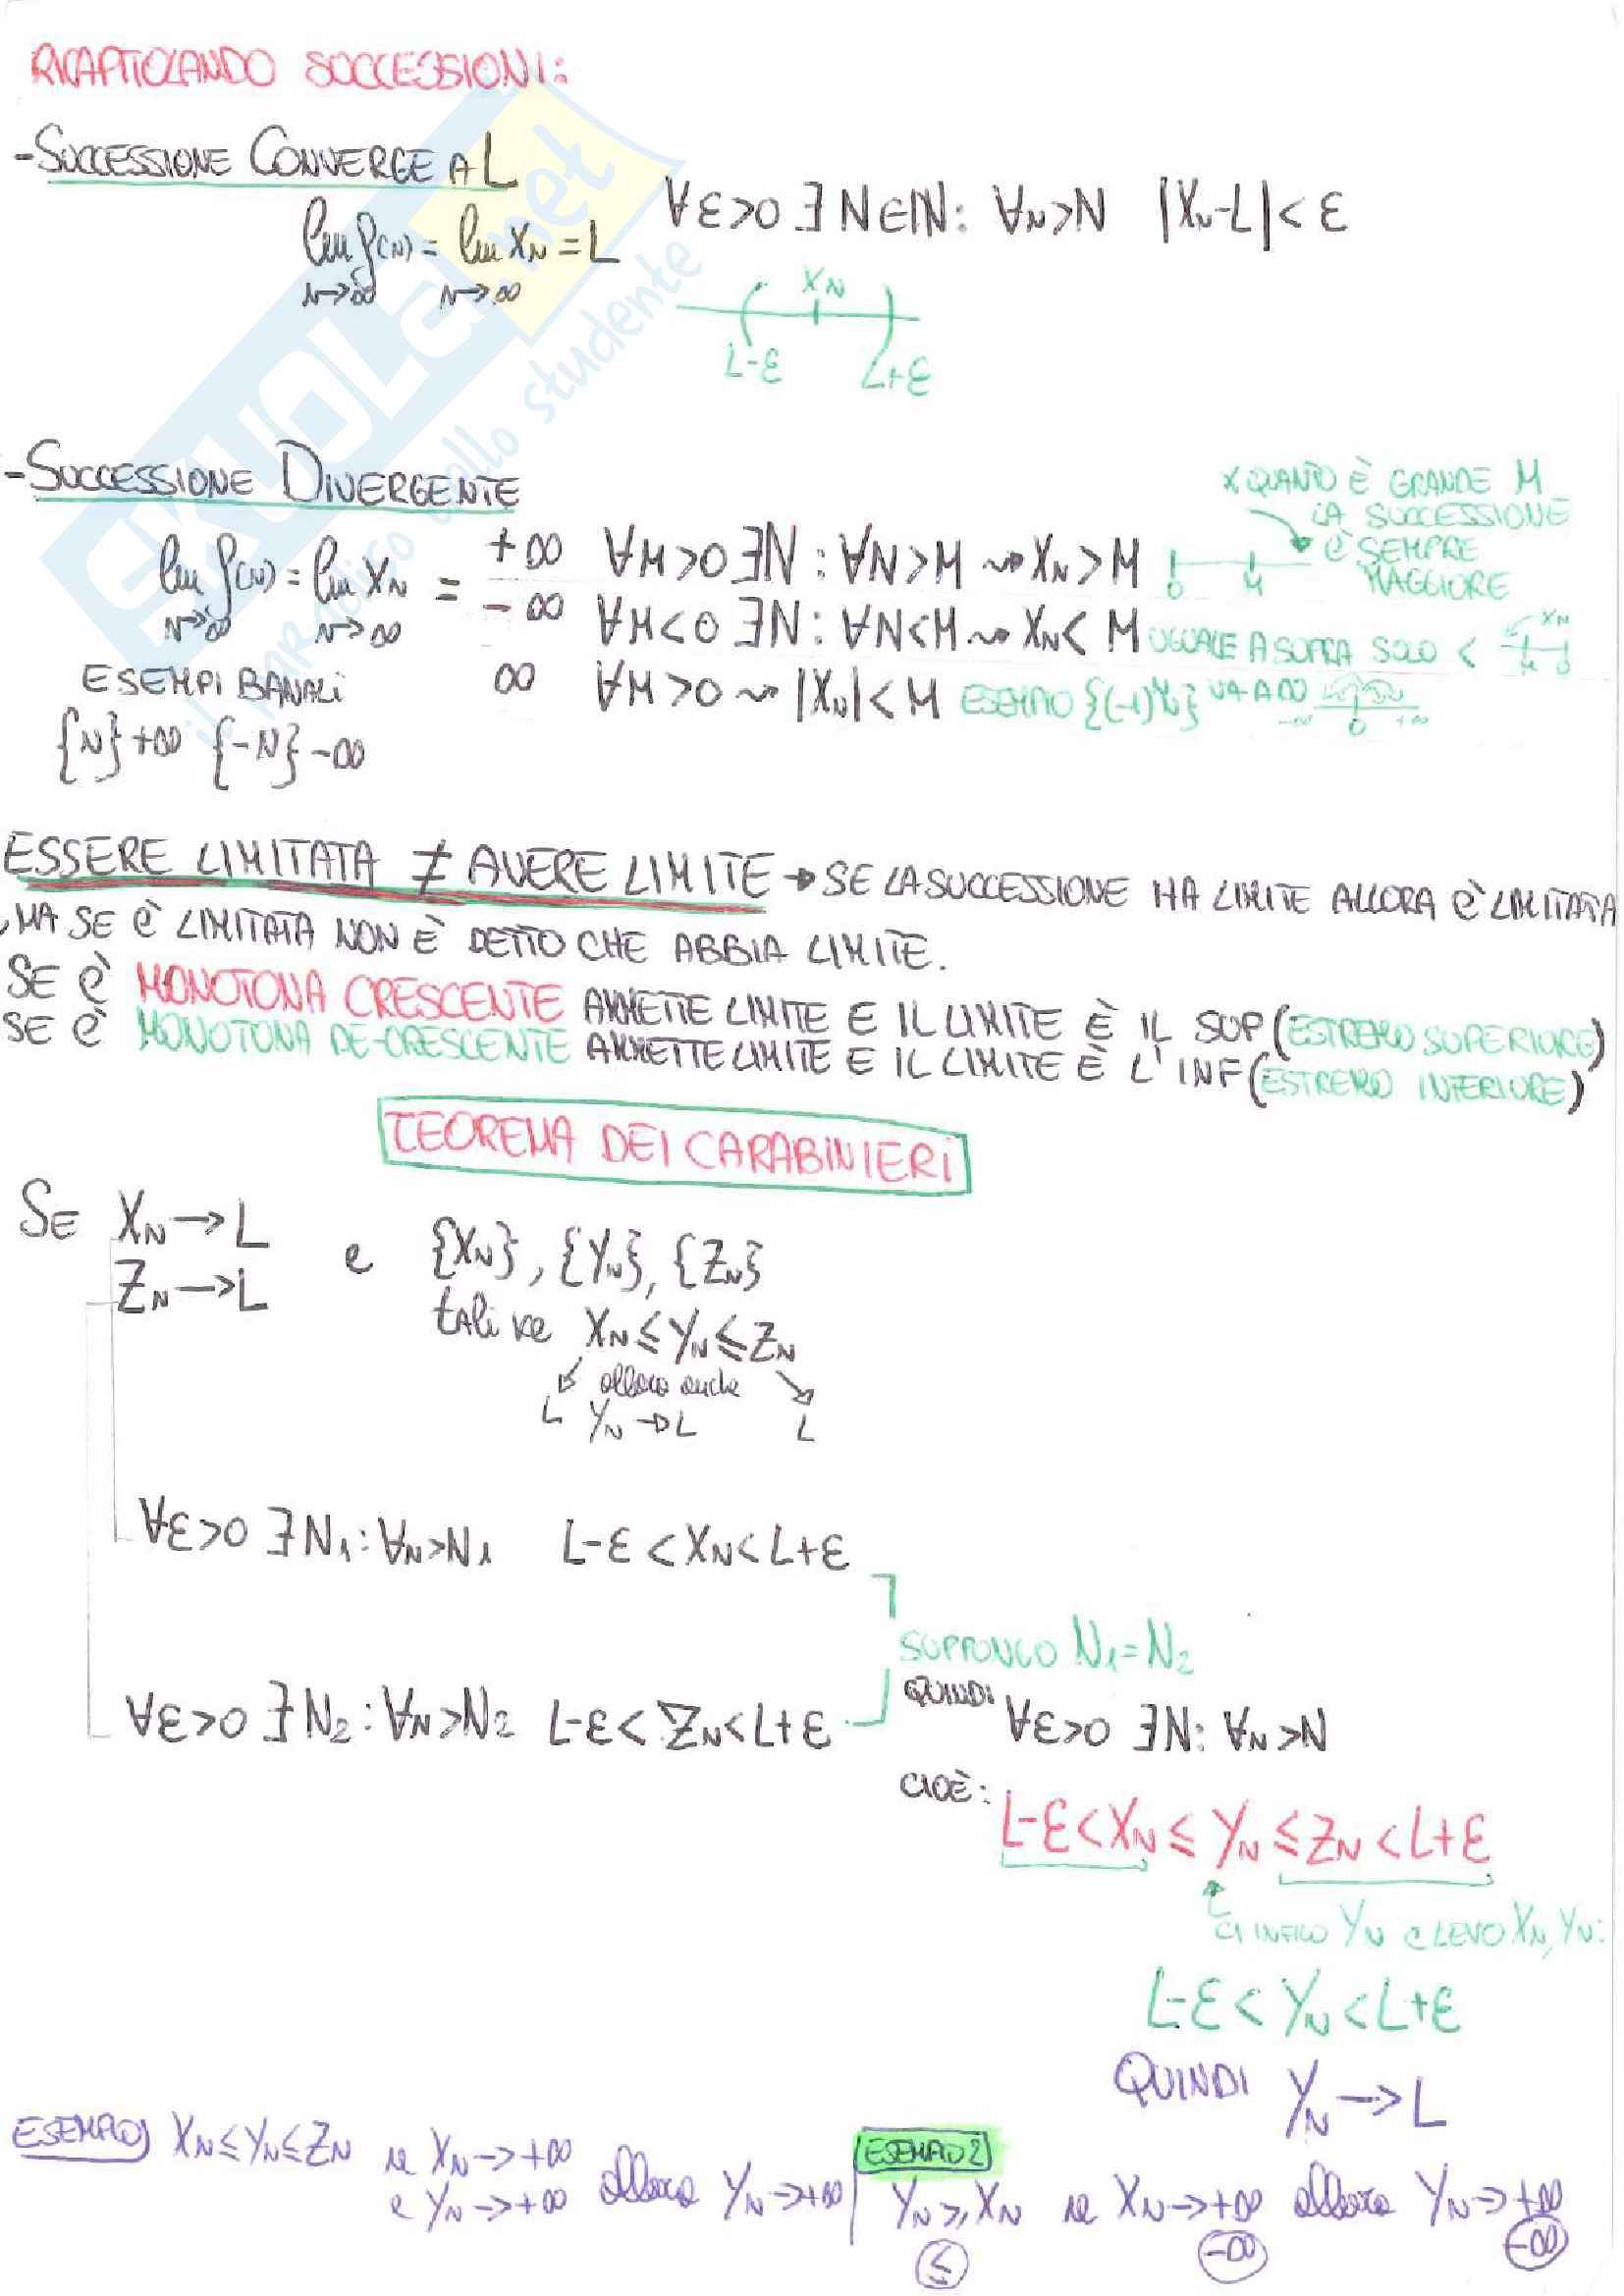 RICAPITOLANDO SUCCESSIONI:
-SUCCESSIONE CONVERGE A L
lim f(N) = lim XN = L
N→∞ N→∞
∀ε>0 ∃N∈ℕ: ∀N>N |XN-L|<ε
XN
L-ε L+ε
-SUCCESSIONE DIVERGENTE
lim f(N) = lim XN =
N→∞ N→∞
+∞ ∀M>0 ∃N: ∀N>M ⇝ XN>M
0 M
X QUANTO È GRANDE M
LA SUCCESSIONE
È SEMPRE
MAGGIORE
-∞ ∀M<0 ∃N: ∀N<M ⇝ XN<M UGUALE A SOPRA SOLO <
XN
M 0
∞ ∀M>0 ⇝ |XN|<M ESEMPIO {(-1)ᴺN} VA A ∞
-∞ 0 +∞
ESEMPI BANALI
{N} +∞ {-N} -∞
ESSERE LIMITATA ≠ AVERE LIMITE → SE LA SUCCESSIONE HA LIMITE ALLORA È LIMITATA
,MA SE È LIMITATA NON È DETTO CHE ABBIA LIMITE.
SE È MONOTONA CRESCENTE AMMETTE LIMITE E IL LIMITE È IL SUP (ESTREMO SUPERIORE)
SE È MONOTONA DE-CRESCENTE AMMETTE LIMITE E IL LIMITE È L'INF (ESTREMO INFERIORE)
TEOREMA DEI CARABINIERI
SE XN→L
ZN→L
e {XN}, {YN}, {ZN}
tali XN≤YN≤ZN
allora anche
L YN→L L
∀ε>0 ∃N1: ∀N>N1 L-ε<XN<L+ε
SUPPONGO N1=N2
∀ε>0 ∃N2: ∀N>N2 L-ε<ZN<L+ε
QUINDI ∀ε>0 ∃N: ∀N>N
CIOÈ:
L-ε<XN≤YN≤ZN<L+ε
CI INFILO YN E LEVO XN, YN:
L-ε<YN<L+ε
QUINDI YN→L
ESEMPIO) XN≤YN≤ZN se XN→+∞
e YN→+∞ allora YN→+∞
ESEMPIO 2
YN≥XN se XN→+∞ allora YN→+∞
≤ -∞ -∞
SKUOLA.net
il paradiso dello studente